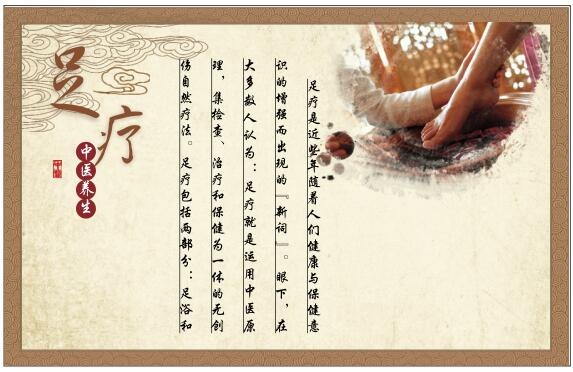 足疗
中医养生
足疗是近些年随着人们健康与保健意
识的增强而出现的『新词』。眼下，在
大多数人认为：足疗就是运用中医原
理，集检查、治疗和保健为一体的无创
伤自然疗法。足疗包括两部分：足浴和